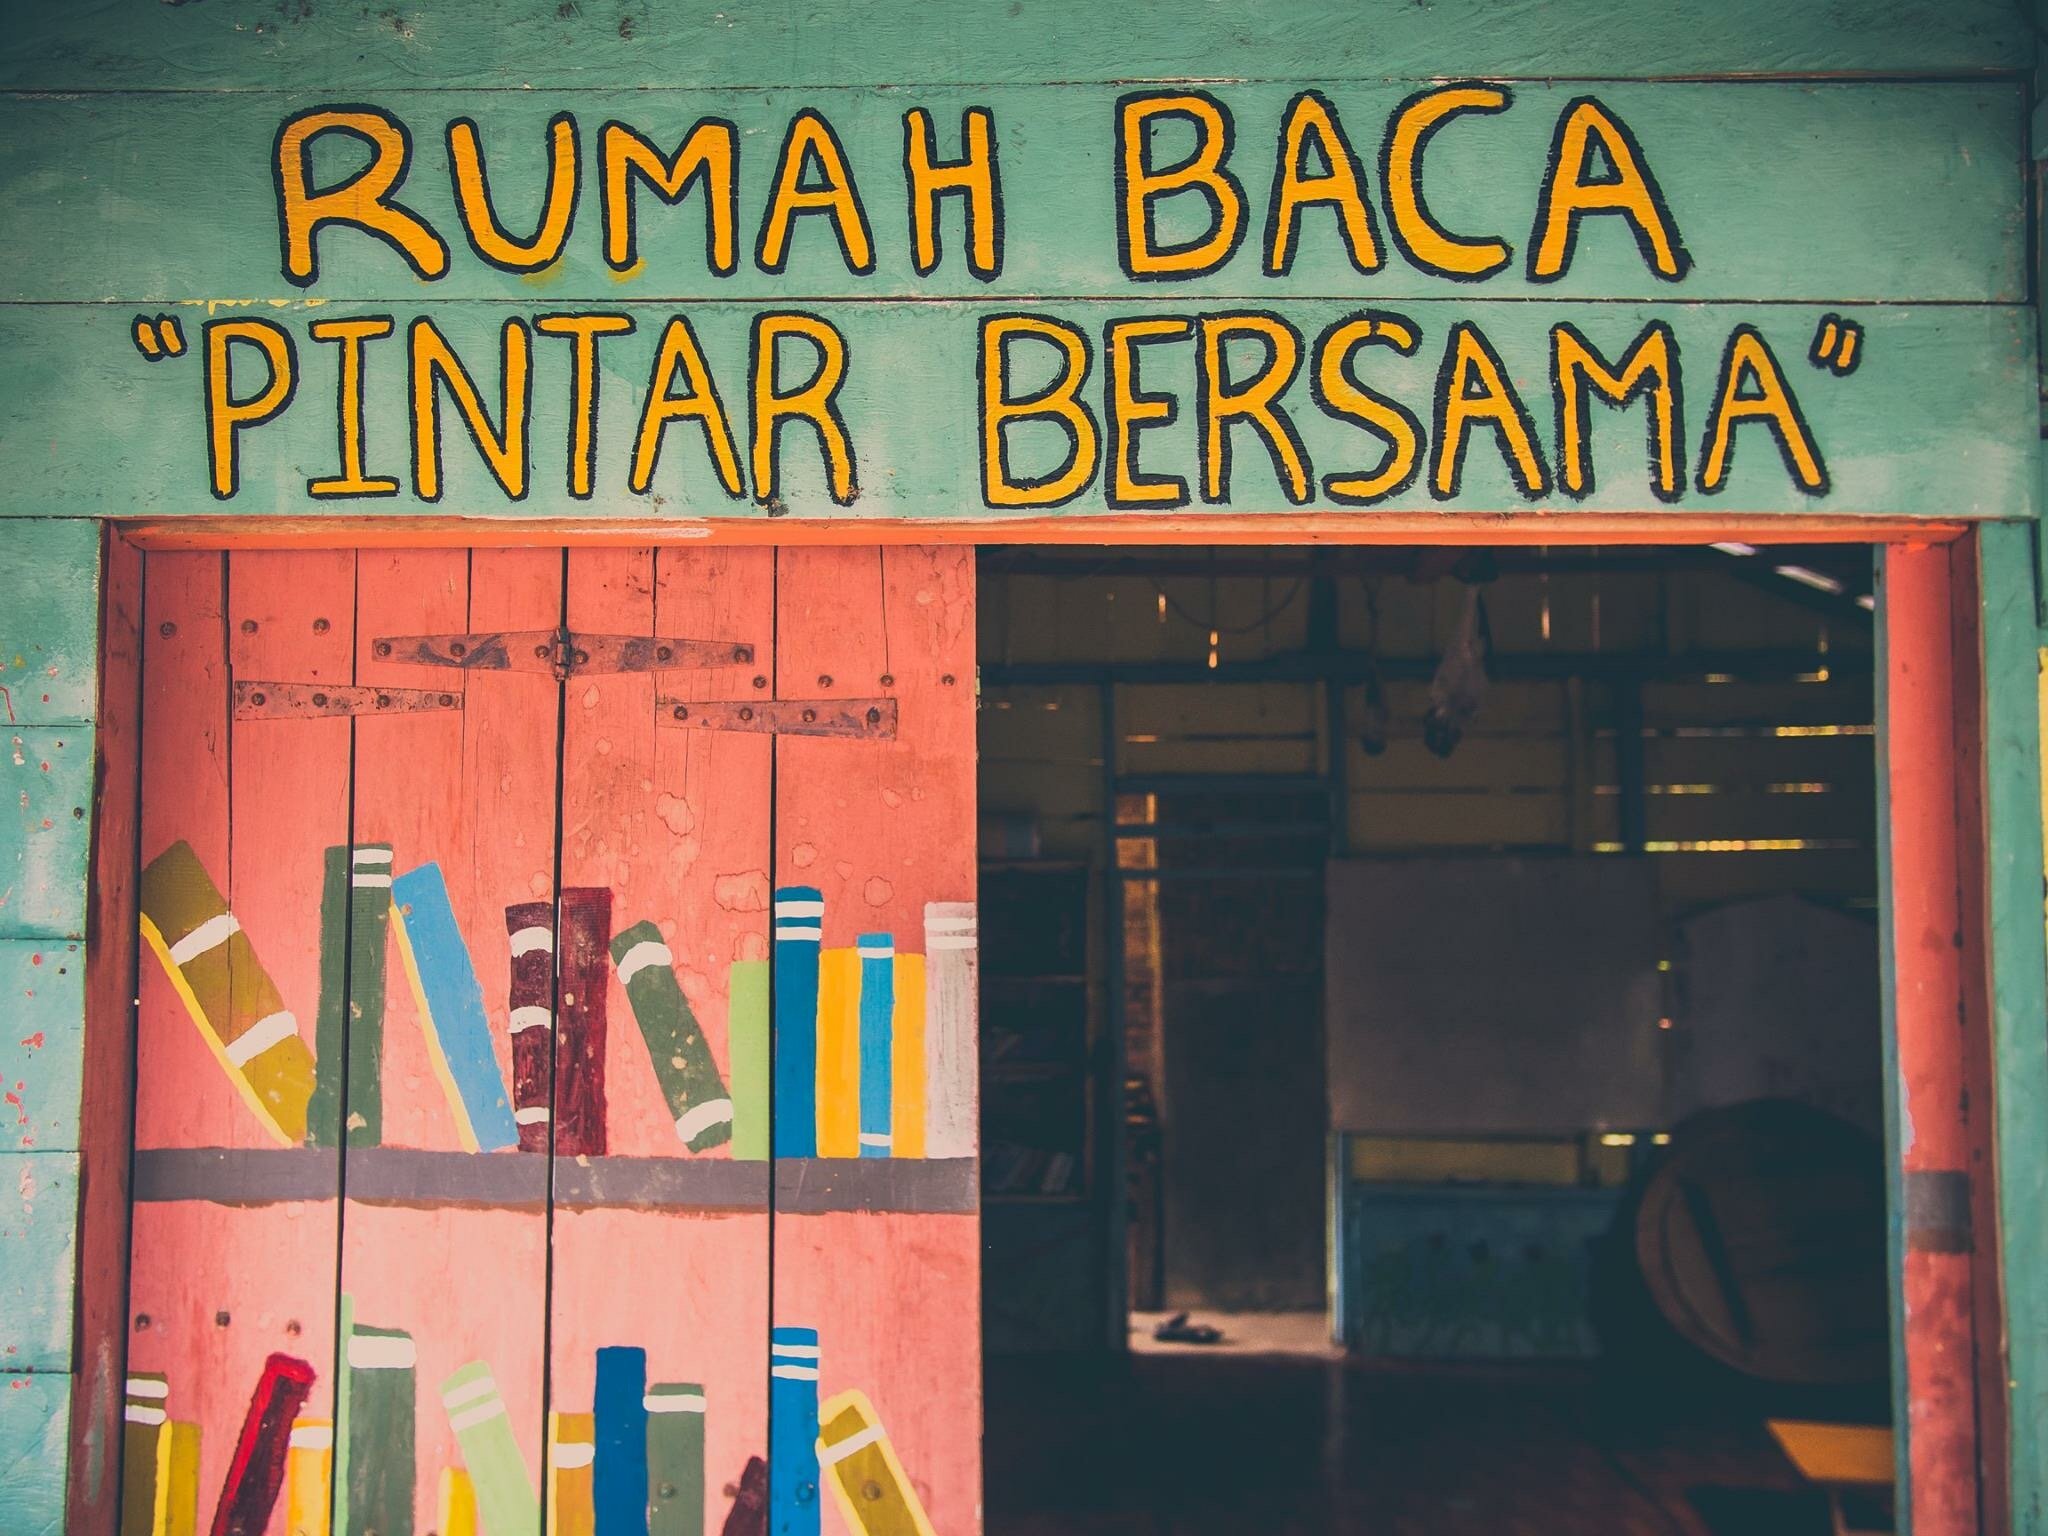 RUMAH BACA
"PINTAR BERSAMA"